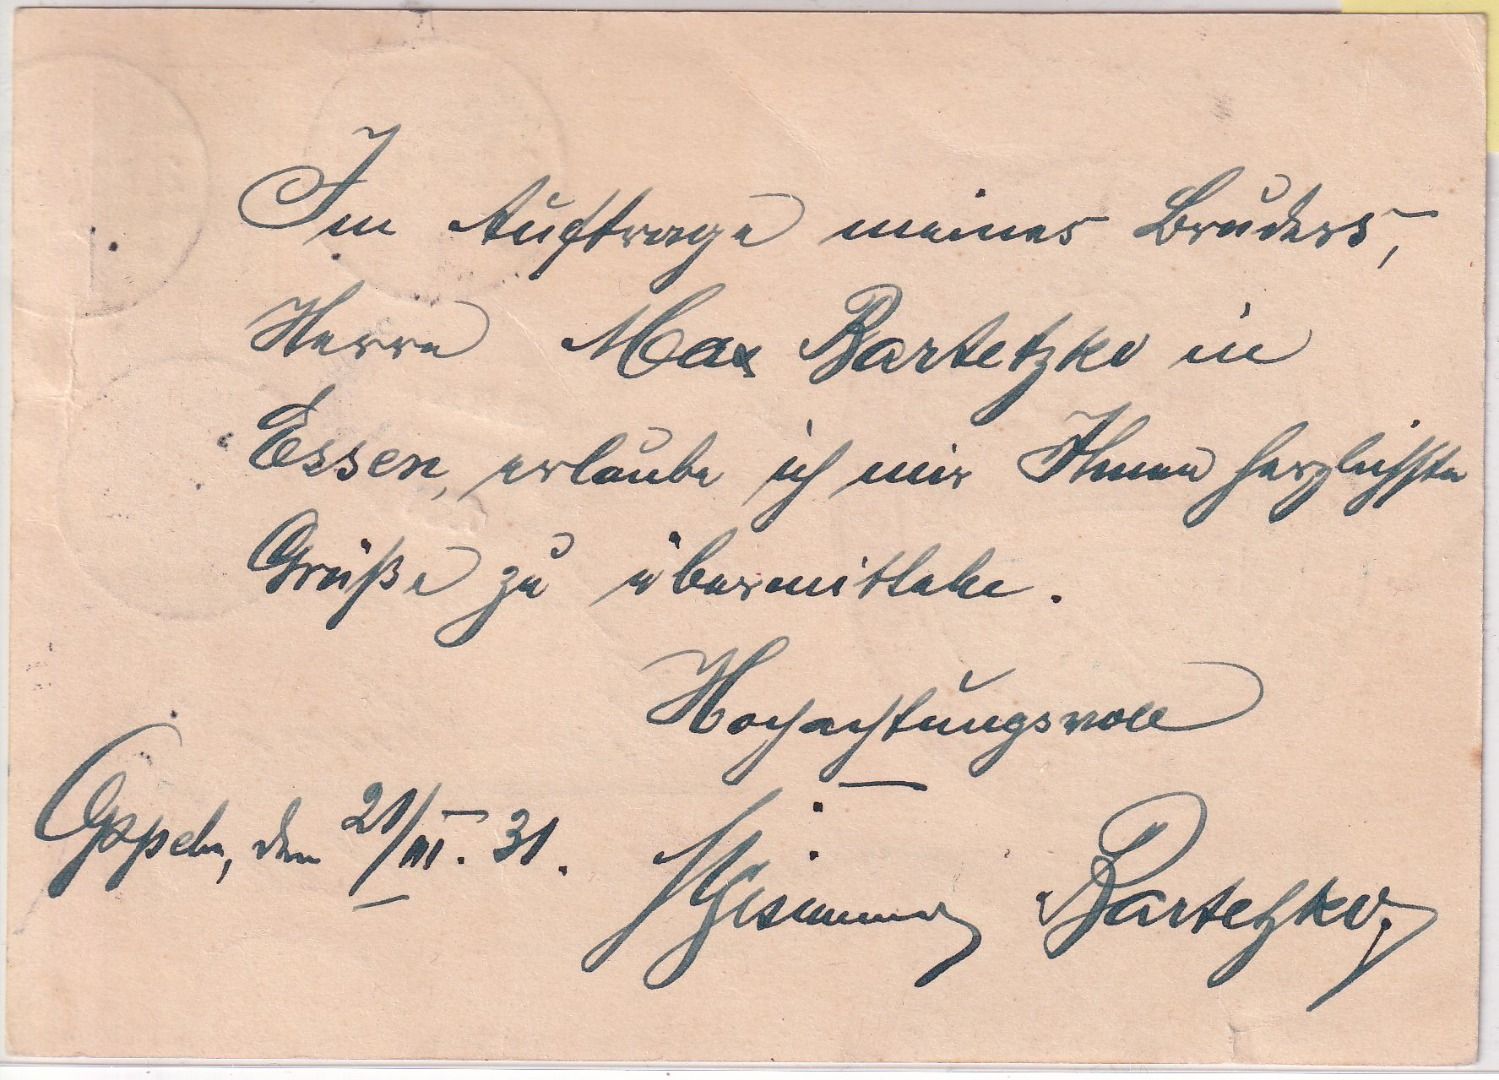 Im Auftrage meines Bruders,
Herrn Max Bartetzko in
Essen, erlaube ich mir Ihnen herzlichste
Grüße zu übermitteln.
Hochachtungsvoll
Oppeln, den 21/III. 31.
Bartetzko.